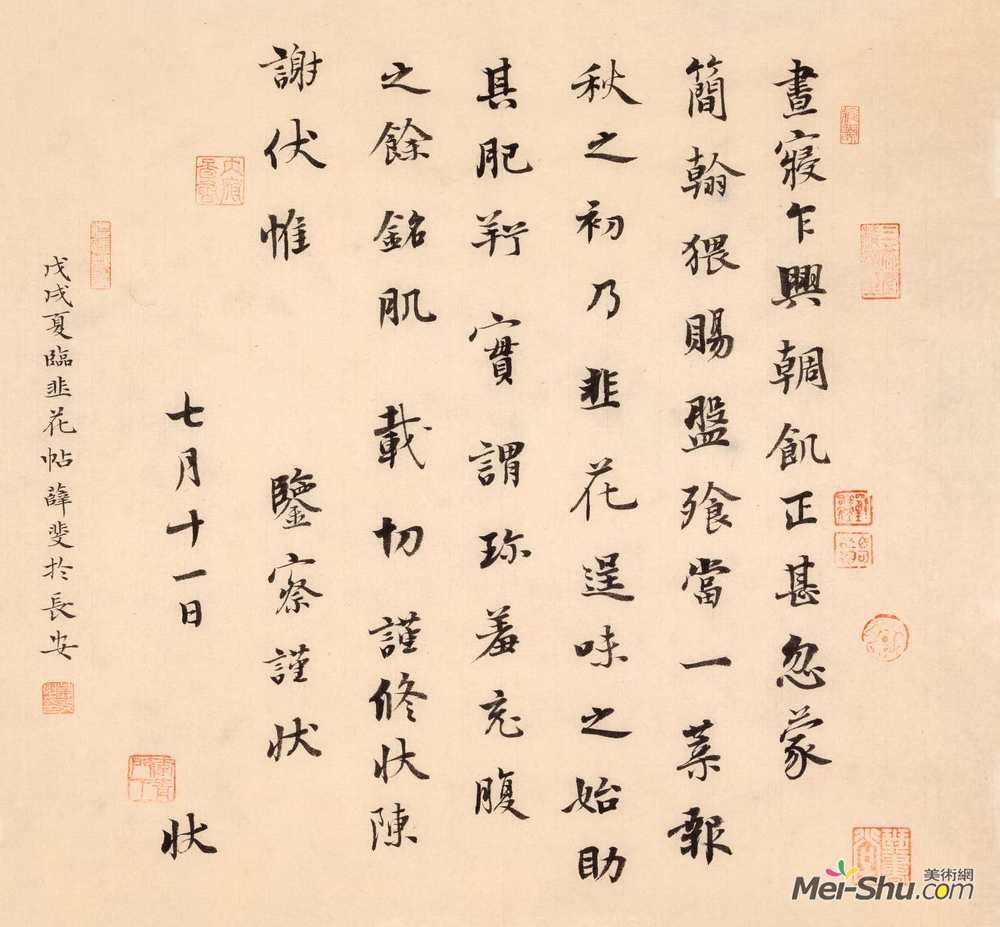 晝寢乍興輖飢正甚忽蒙
簡翰猥賜盤飧當一葉報
秋之初乃韭花逞味之始助
其肥羜實謂珍羞充腹
之餘銘肌載切謹修狀陳
謝伏惟 鑒察謹狀
七月十一日 狀
戊戌夏臨韭花帖薛斐於長安
美術網
Mei-Shu.com